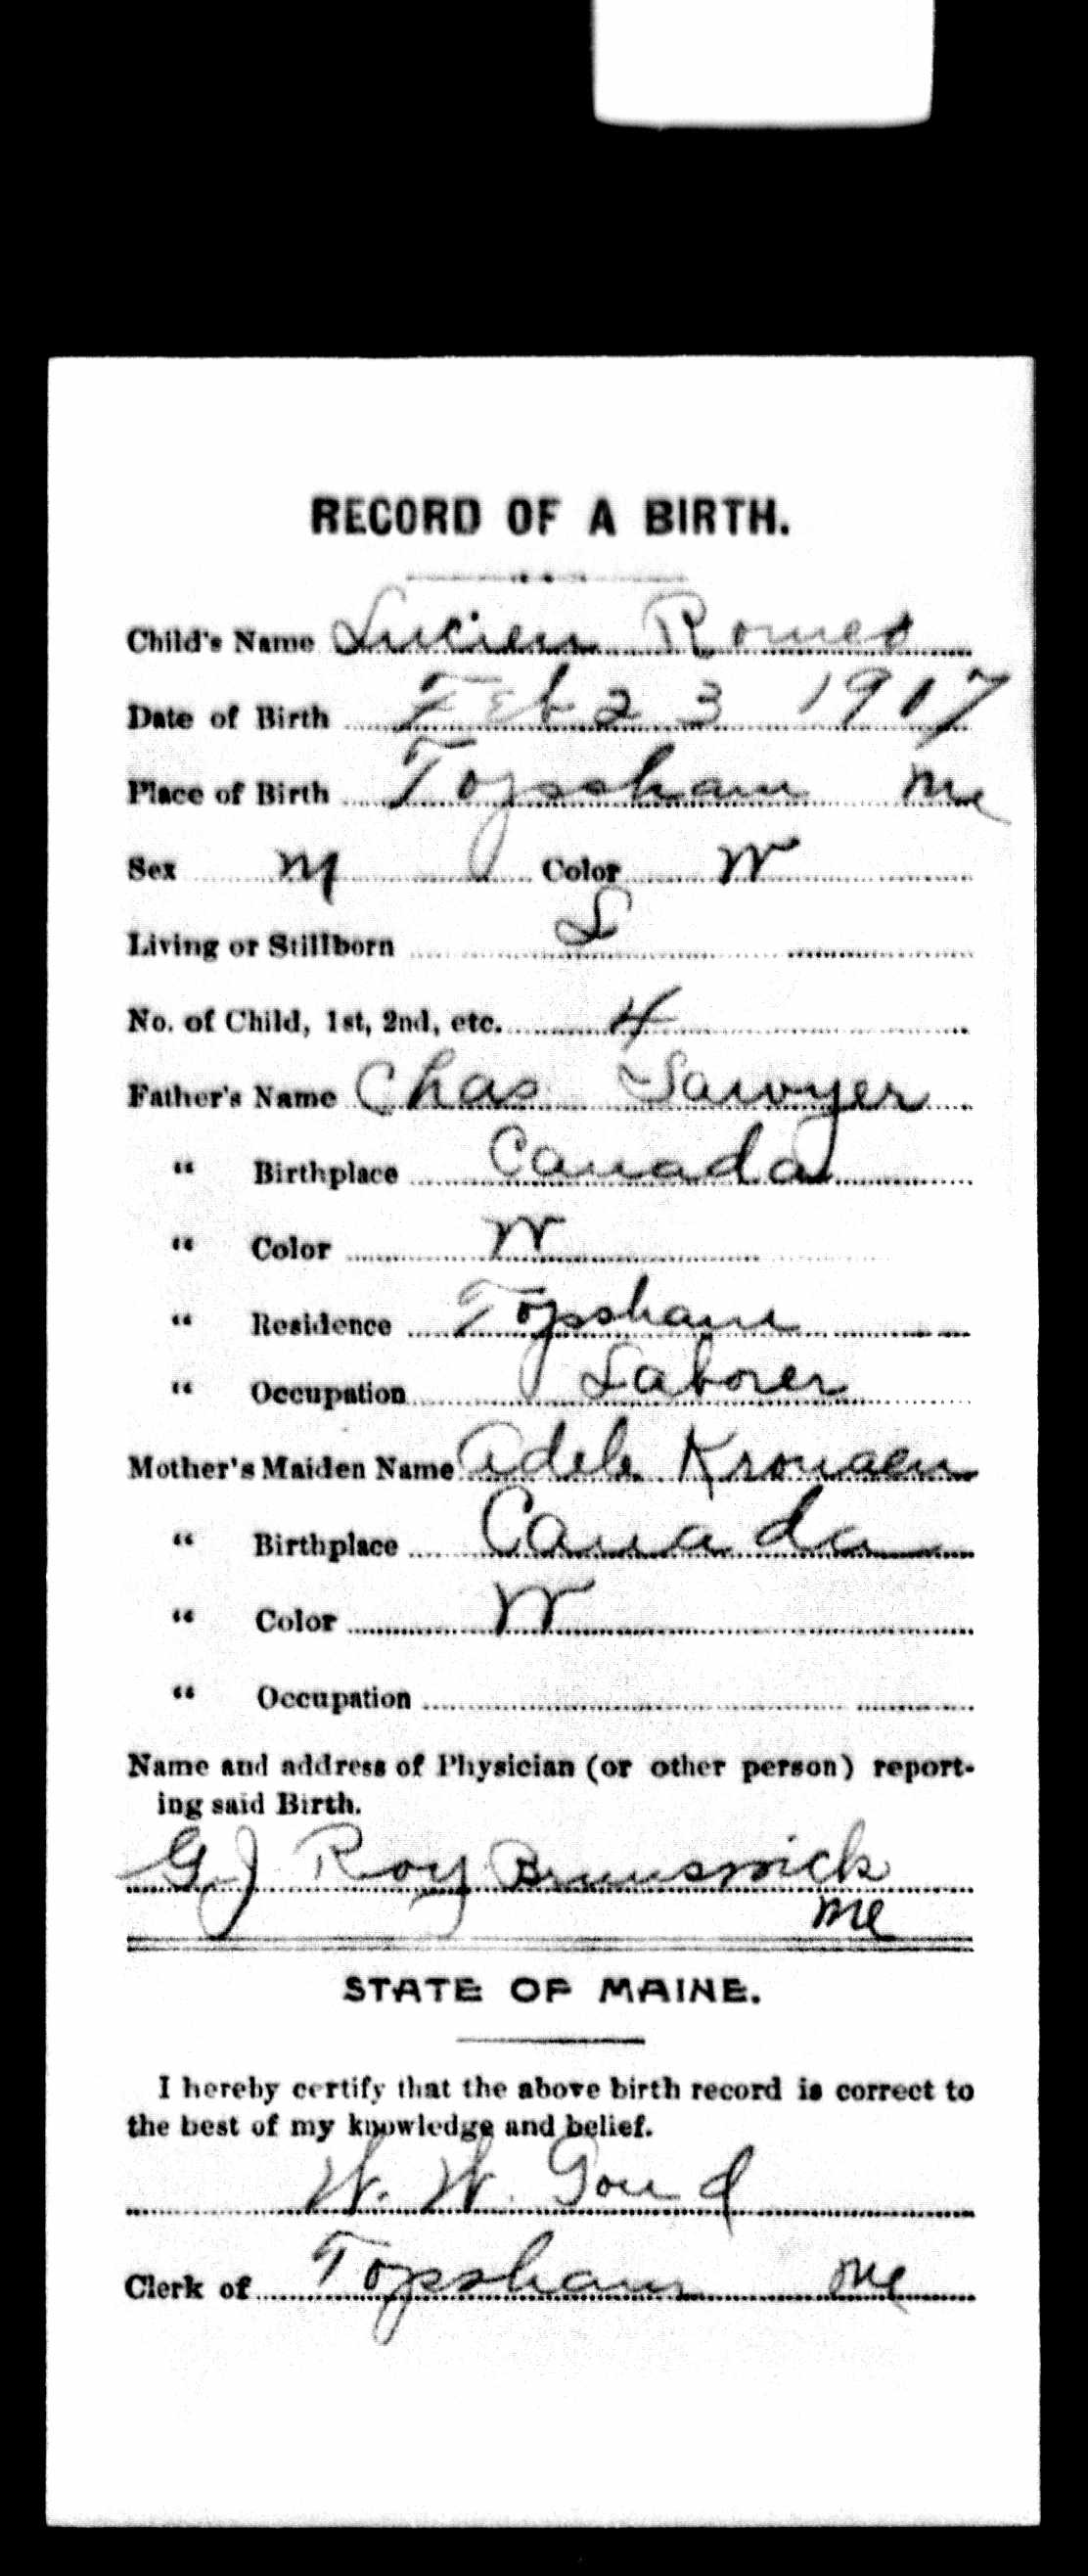 RECORD OF A BIRTH.
Child's Name Lucien Romeo
Date of Birth Feb 23 1907
Place of Birth Topsham Me
Sex M Color W
Living or Stillborn L
No. of Child, 1st, 2nd, etc. 4
Father's Name Chas Sawyer
" Birthplace Canada
" Color W
" Residence Topsham
" Occupation Laborer
Mother's Maiden Name Adele
" Birthplace Canada
" Color W
" Occupation
Name and address of Physician (or other person) report-
ing said Birth.
G J Roy Brunswick
Me
STATE OF MAINE.
I hereby certify that the above birth record is correct to
the best of my knowledge and belief.
W. W. Goud
Clerk of Topsham Me